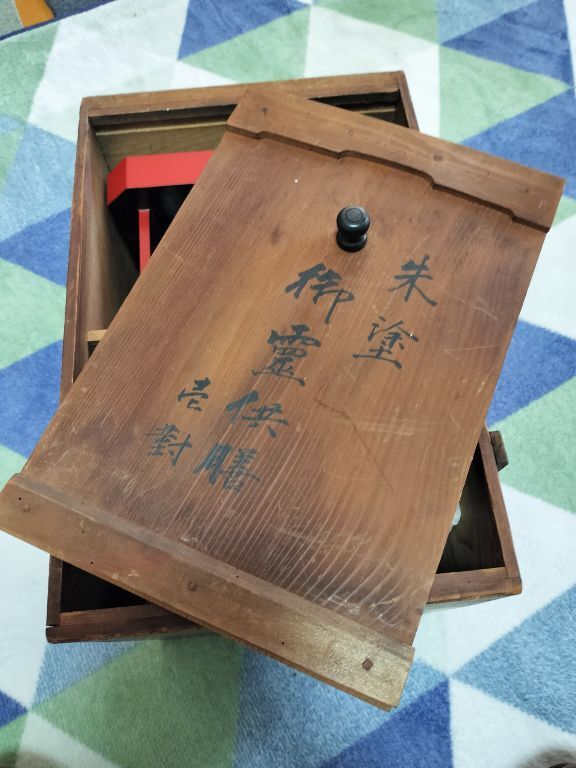 朱塗
御靈供膳
壱對